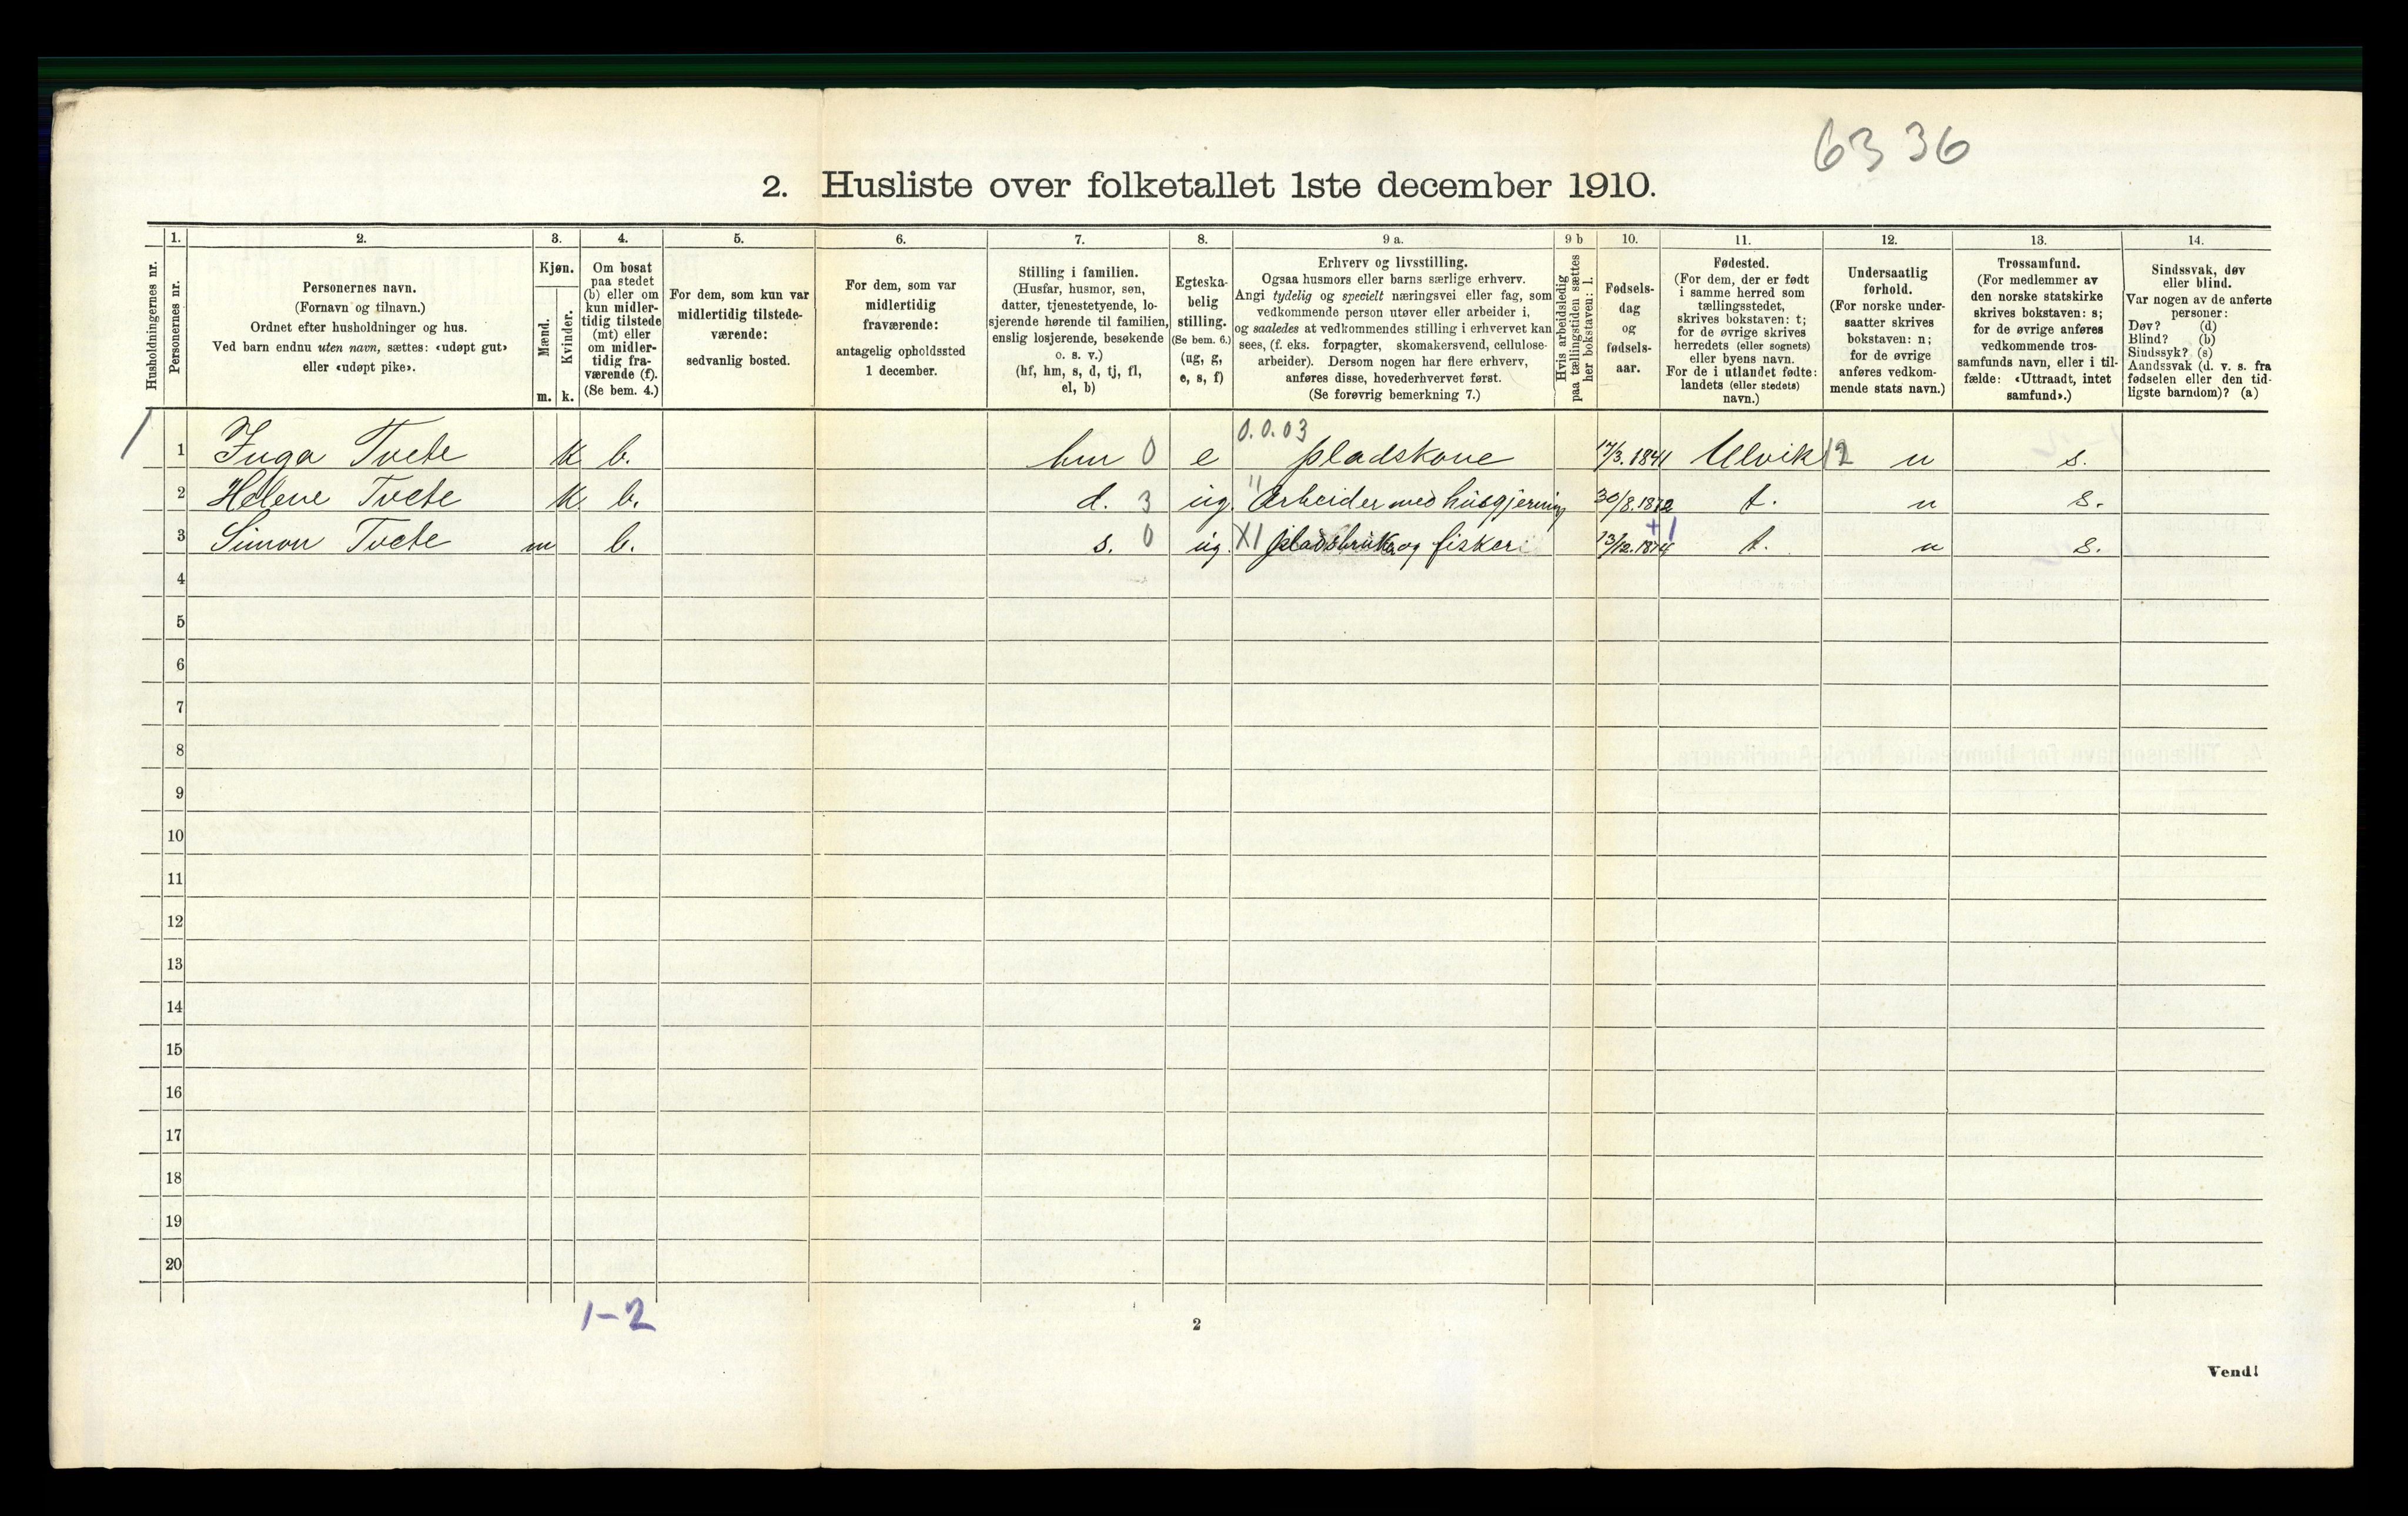 63 36
2. Husliste over folketallet 1ste december 1910.
1. 2. 3. 4. 5. 6. 7. 8. 9 a. 9 b 10. 11. 12. 13. 14.
Husholdningernes nr.
Personernes nr.
Personernes navn.
(Fornavn og tilnavn.)
Ordnet efter husholdninger og hus.
Ved barn endnu uten navn, sættes: «udøpt gut»
eller «udøpt pike».
Kjøn.
Mænd.
Kvinder.
m. k.
Om bosat
paa stedet
(b) eller om
kun midler-
tidig tilstede
(mt) eller
om midler-
tidig fra-
værende (f).
(Se bem. 4.)
For dem, som kun var
midlertidig tilstede-
værende:
sedvanlig bosted.
For dem, som var
midlertidig
fraværende:
antagelig opholdssted
1 december.
Stilling i familien.
(Husfar, husmor, søn,
datter, tjenestetyende, lo-
sjerende hørende til familien,
enslig losjerende, besøkende
o. s. v.)
(hf, hm, s, d, tj, fl,
el, b)
Egteska-
belig
stilling.
(Se bem. 6.)
(ug, g,
e, s, f)
Erhverv og livsstilling.
Ogsaa husmors eller barns særlige erhverv.
Angi tydelig og specielt næringsvei eller fag, som
vedkommende person utøver eller arbeider i,
og saaledes at vedkommendes stilling i erhvervet kan
sees, (f. eks. forpagter, skomakersvend, cellulose-
arbeider). Dersom nogen har flere erhverv,
anføres disse, hovederhvervet først.
(Se forøvrig bemerkning 7.)
Hvis arbeidsledig
paa tællingstiden sættes
her bokstaven: l.
Fødsels-
dag
og
fødsels-
aar.
Fødested.
(For dem, der er født
i samme herred som
tællingsstedet,
skrives bokstaven: t;
for de øvrige skrives
herredets (eller sognets)
eller byens navn.
For de i utlandet fødte:
landets (eller stedets)
navn.)
Undersaatlig
forhold.
(For norske under-
saatter skrives
bokstaven: n;
for de øvrige
anføres vedkom-
mende stats navn.)
Trossamfund.
(For medlemmer av
den norske statskirke
skrives bokstaven: s;
for de øvrige anføres
vedkommende tros-
samfunds navn, eller i til-
fælde: «Uttraadt, intet
samfund».)
Sindssvak, døv
eller blind.
Var nogen av de anførte
personer:
Døv? (d)
Blind? (b)
Sindssyk? (s)
Aandssvak (d. v. s. fra
fødselen eller den tid-
ligste barndom)? (a)
0.0.03
1 1 Inga Tvete k b. hm 0 e pladskone 17/3. 1841 Ulvik 12 n s.
2 Helene Tvete k b. d. 3 ug. " Arbeider med husgjerning 30/8. 1872 t. n s.
3 Simon Tvete m b. s. 0 ug. X1 pladsbruk og fisker 13/12. 1874 +1 t. n s.
4
5
6
7
8
9
10
11
12
13
14
15
16
17
18
19
20
1-2
2
Vend!